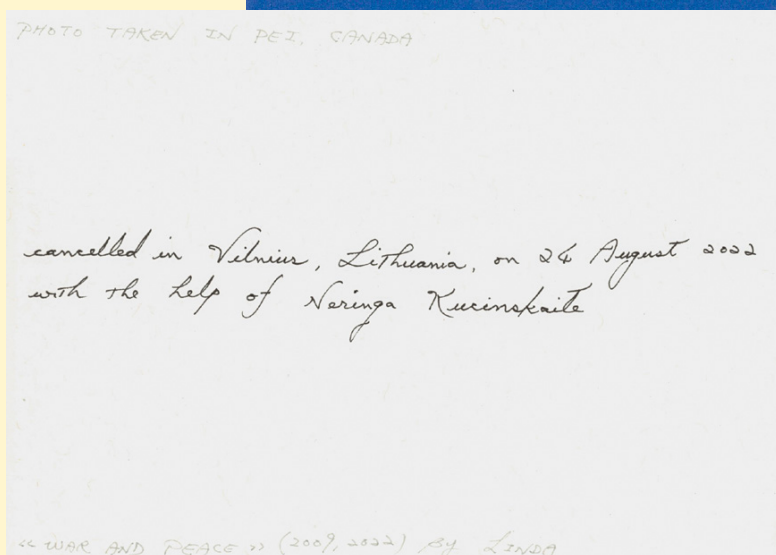 PHOTO TAKEN IN PEI, CANADA
cancelled in Vilnius, Lithuania, on 24 August 2022
with the help of Neringa Kucinskaite
« WAR AND PEACE » (2009, 2022) BY LINDA